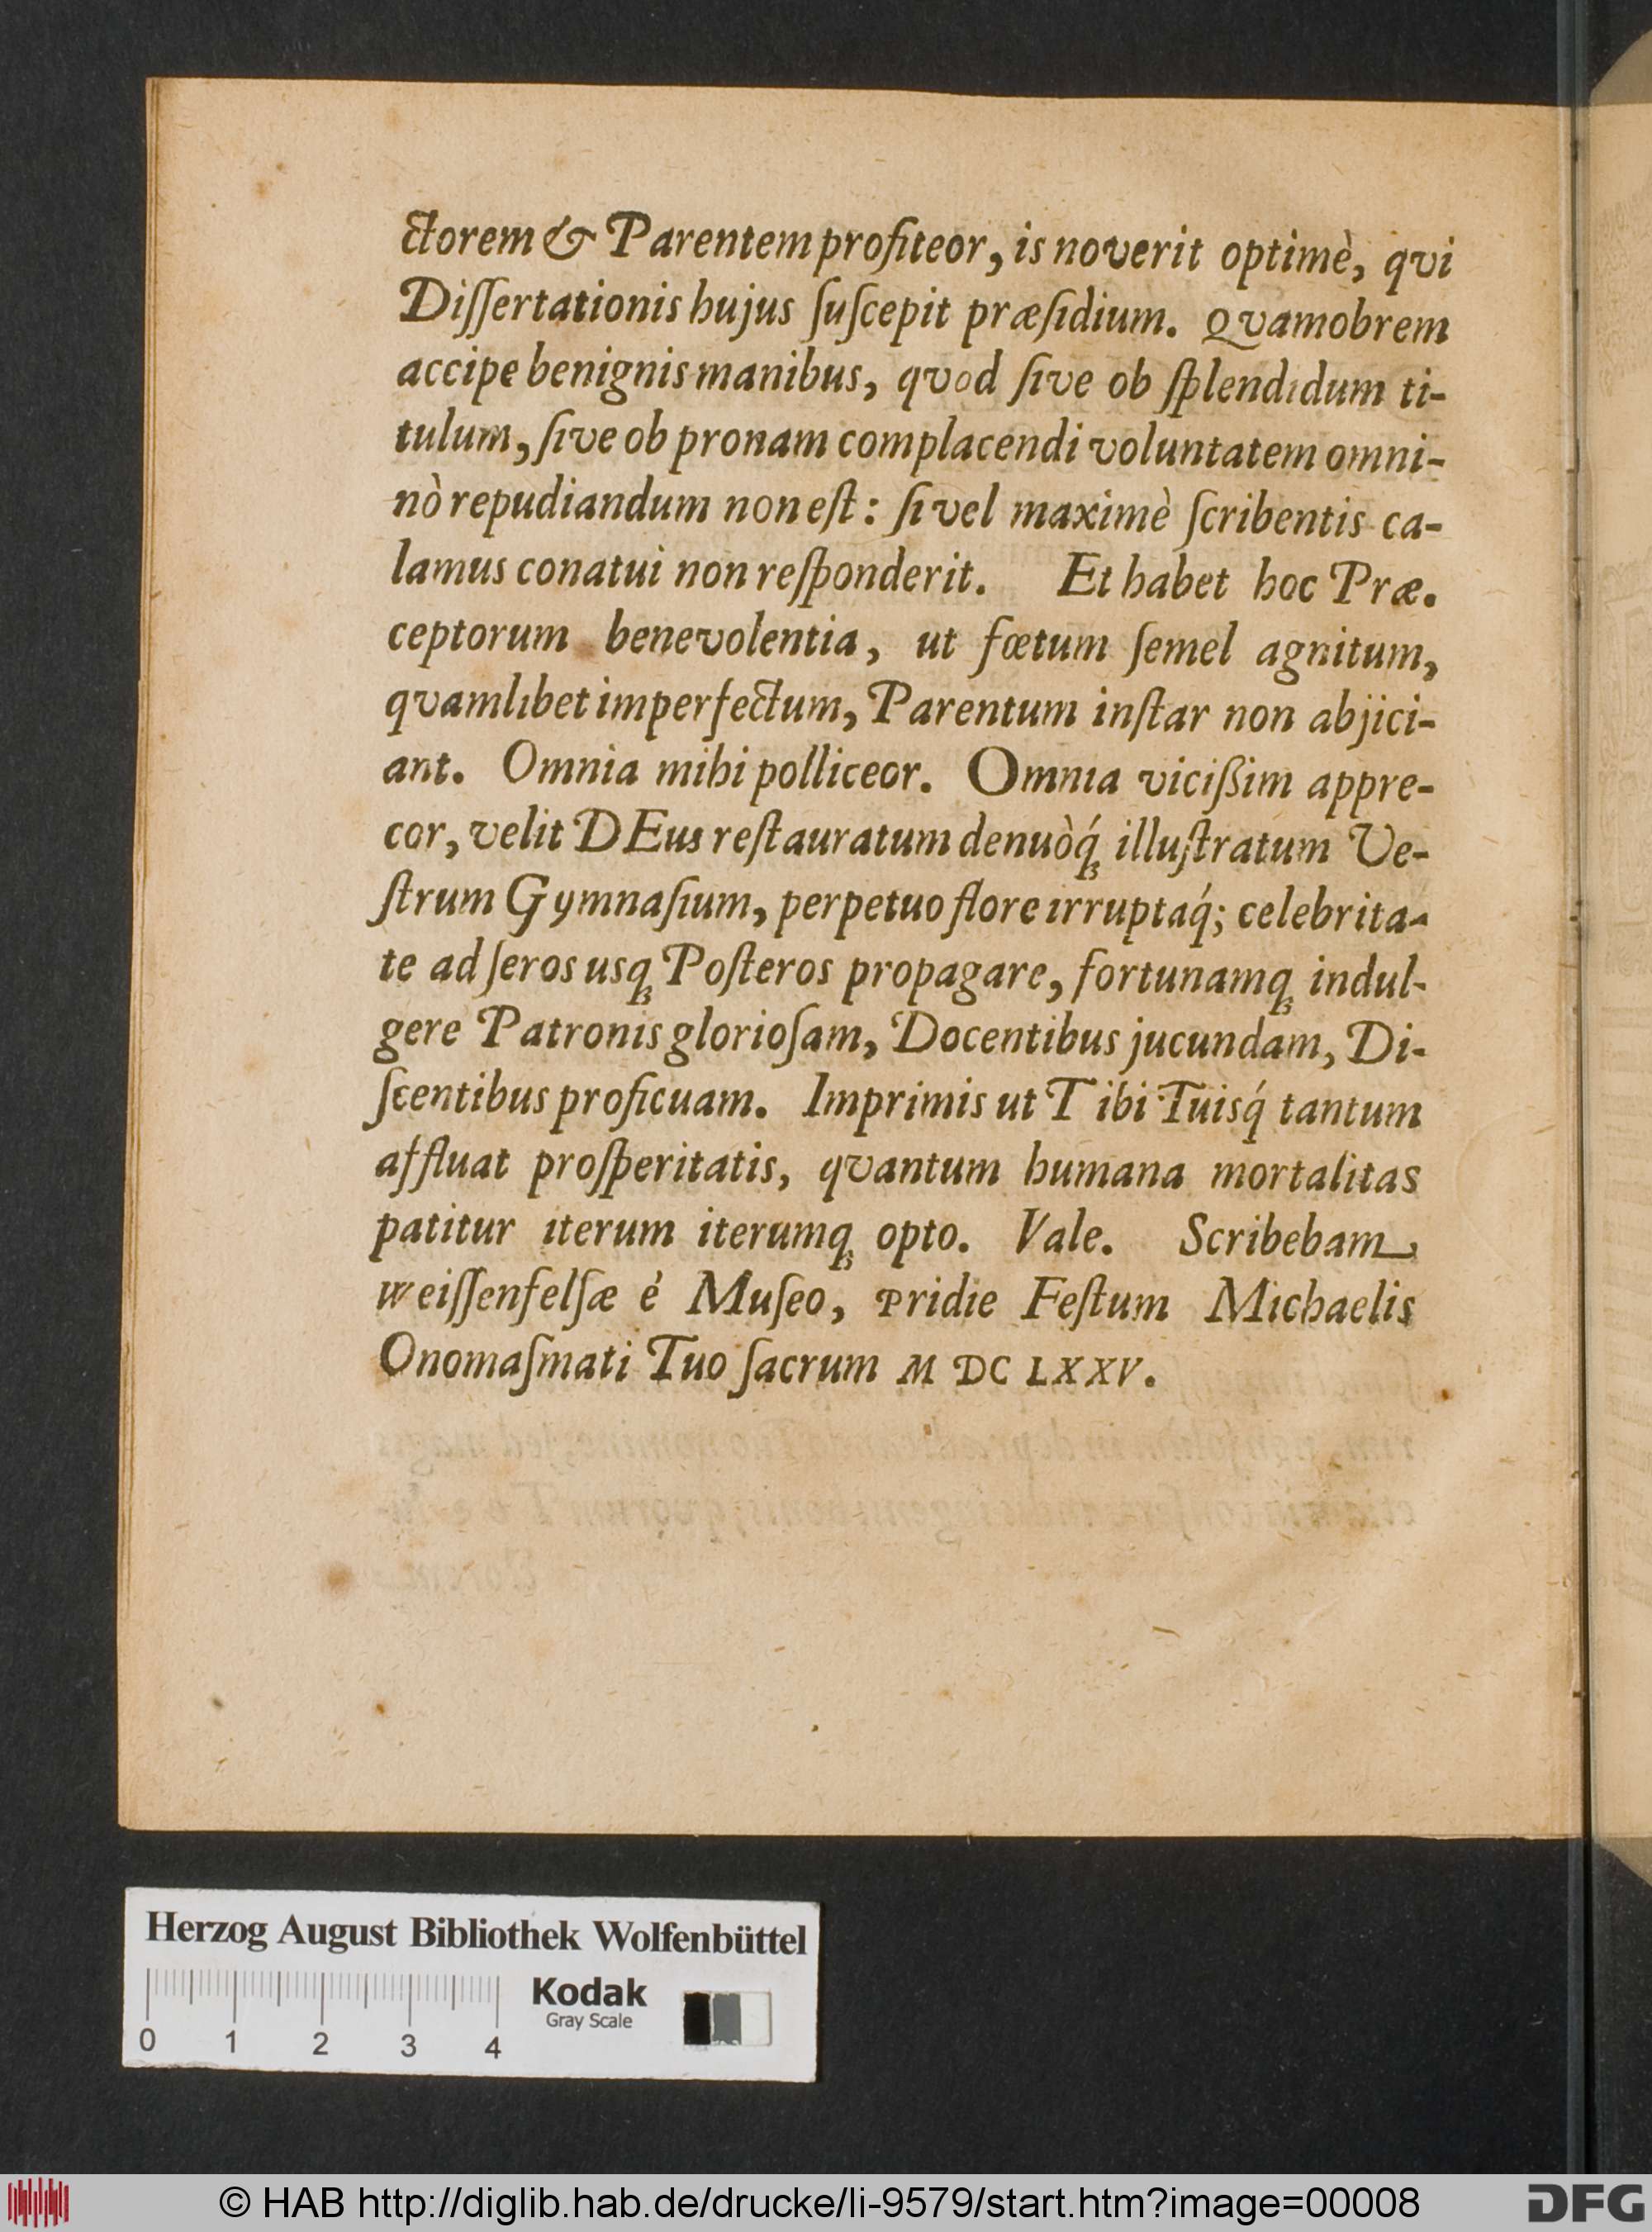 ctorem & Parentem profiteor, is noverit optimè, qvi
Diſſertationis hujus ſuſcepit præſidium. Qvamobrem
accipe benignis manibus, qvod ſive ob ſplendidum ti-
tulum, ſive ob pronam complacendi voluntatem omni-
nò repudiandum non eſt: ſi vel maximè ſcribentis ca-
lamus conatui non reſponderit. Et habet hoc Præ.
ceptorum benevolentia, ut fœtum ſemel agnitum,
qvamlibet imperfectum, Parentum inſtar non abjici-
ant. Omnia mihi polliceor. Omnia vicißim appre-
cor, velit DEus reſtauratum denuòq́ꝫ illuſtratum Ve-
ſtrum Gymnaſium, perpetuo flore irruptaq́; celebrita-
te ad ſeros usqꝫ Poſteros propagare, fortunamqꝫ indul-
gere Patronis glorioſam, Docentibus jucundam, Di-
ſcentibus proficuam. Imprimis ut Tibi Tuisq́ tantum
affluat proſperitatis, qvantum humana mortalitas
patitur iterum iterumqꝫ opto. Vale. Scribebam
Weiſſenfelſæ é Muſeo, Pridie Feſtum Michaelis
Onomaſmati Tuo ſacrum M DC LXXV.
Herzog August Bibliothek Wolfenbüttel
Kodak
Gray Scale
0 1 2 3 4
© HAB http://diglib.hab.de/drucke/li-9579/start.htm?image=00008
DFG